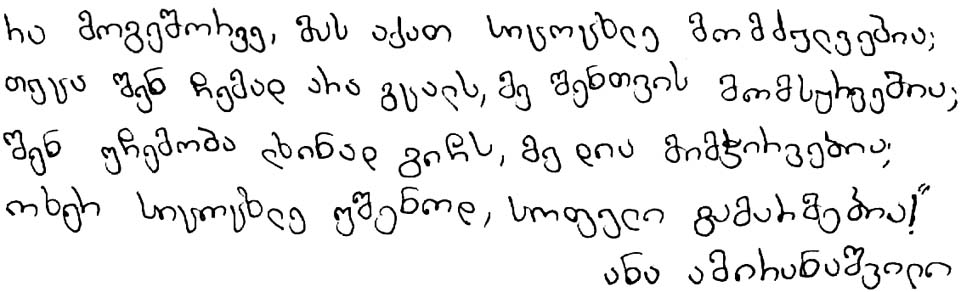 რა მოგეშორვე, მას აქათ სიცოცხლე მომძულვებია;
თუცა შენ ჩემად არა გცალს, მე შენთვის მომსურვებია;
შენ უჩემობა ლხინად გიჩს, მე დია მიმჭირვებია;
ოხერ სიცოცხლე უშენოდ, სოფელი გამარმებია!“
ანა ამირანაშვილი